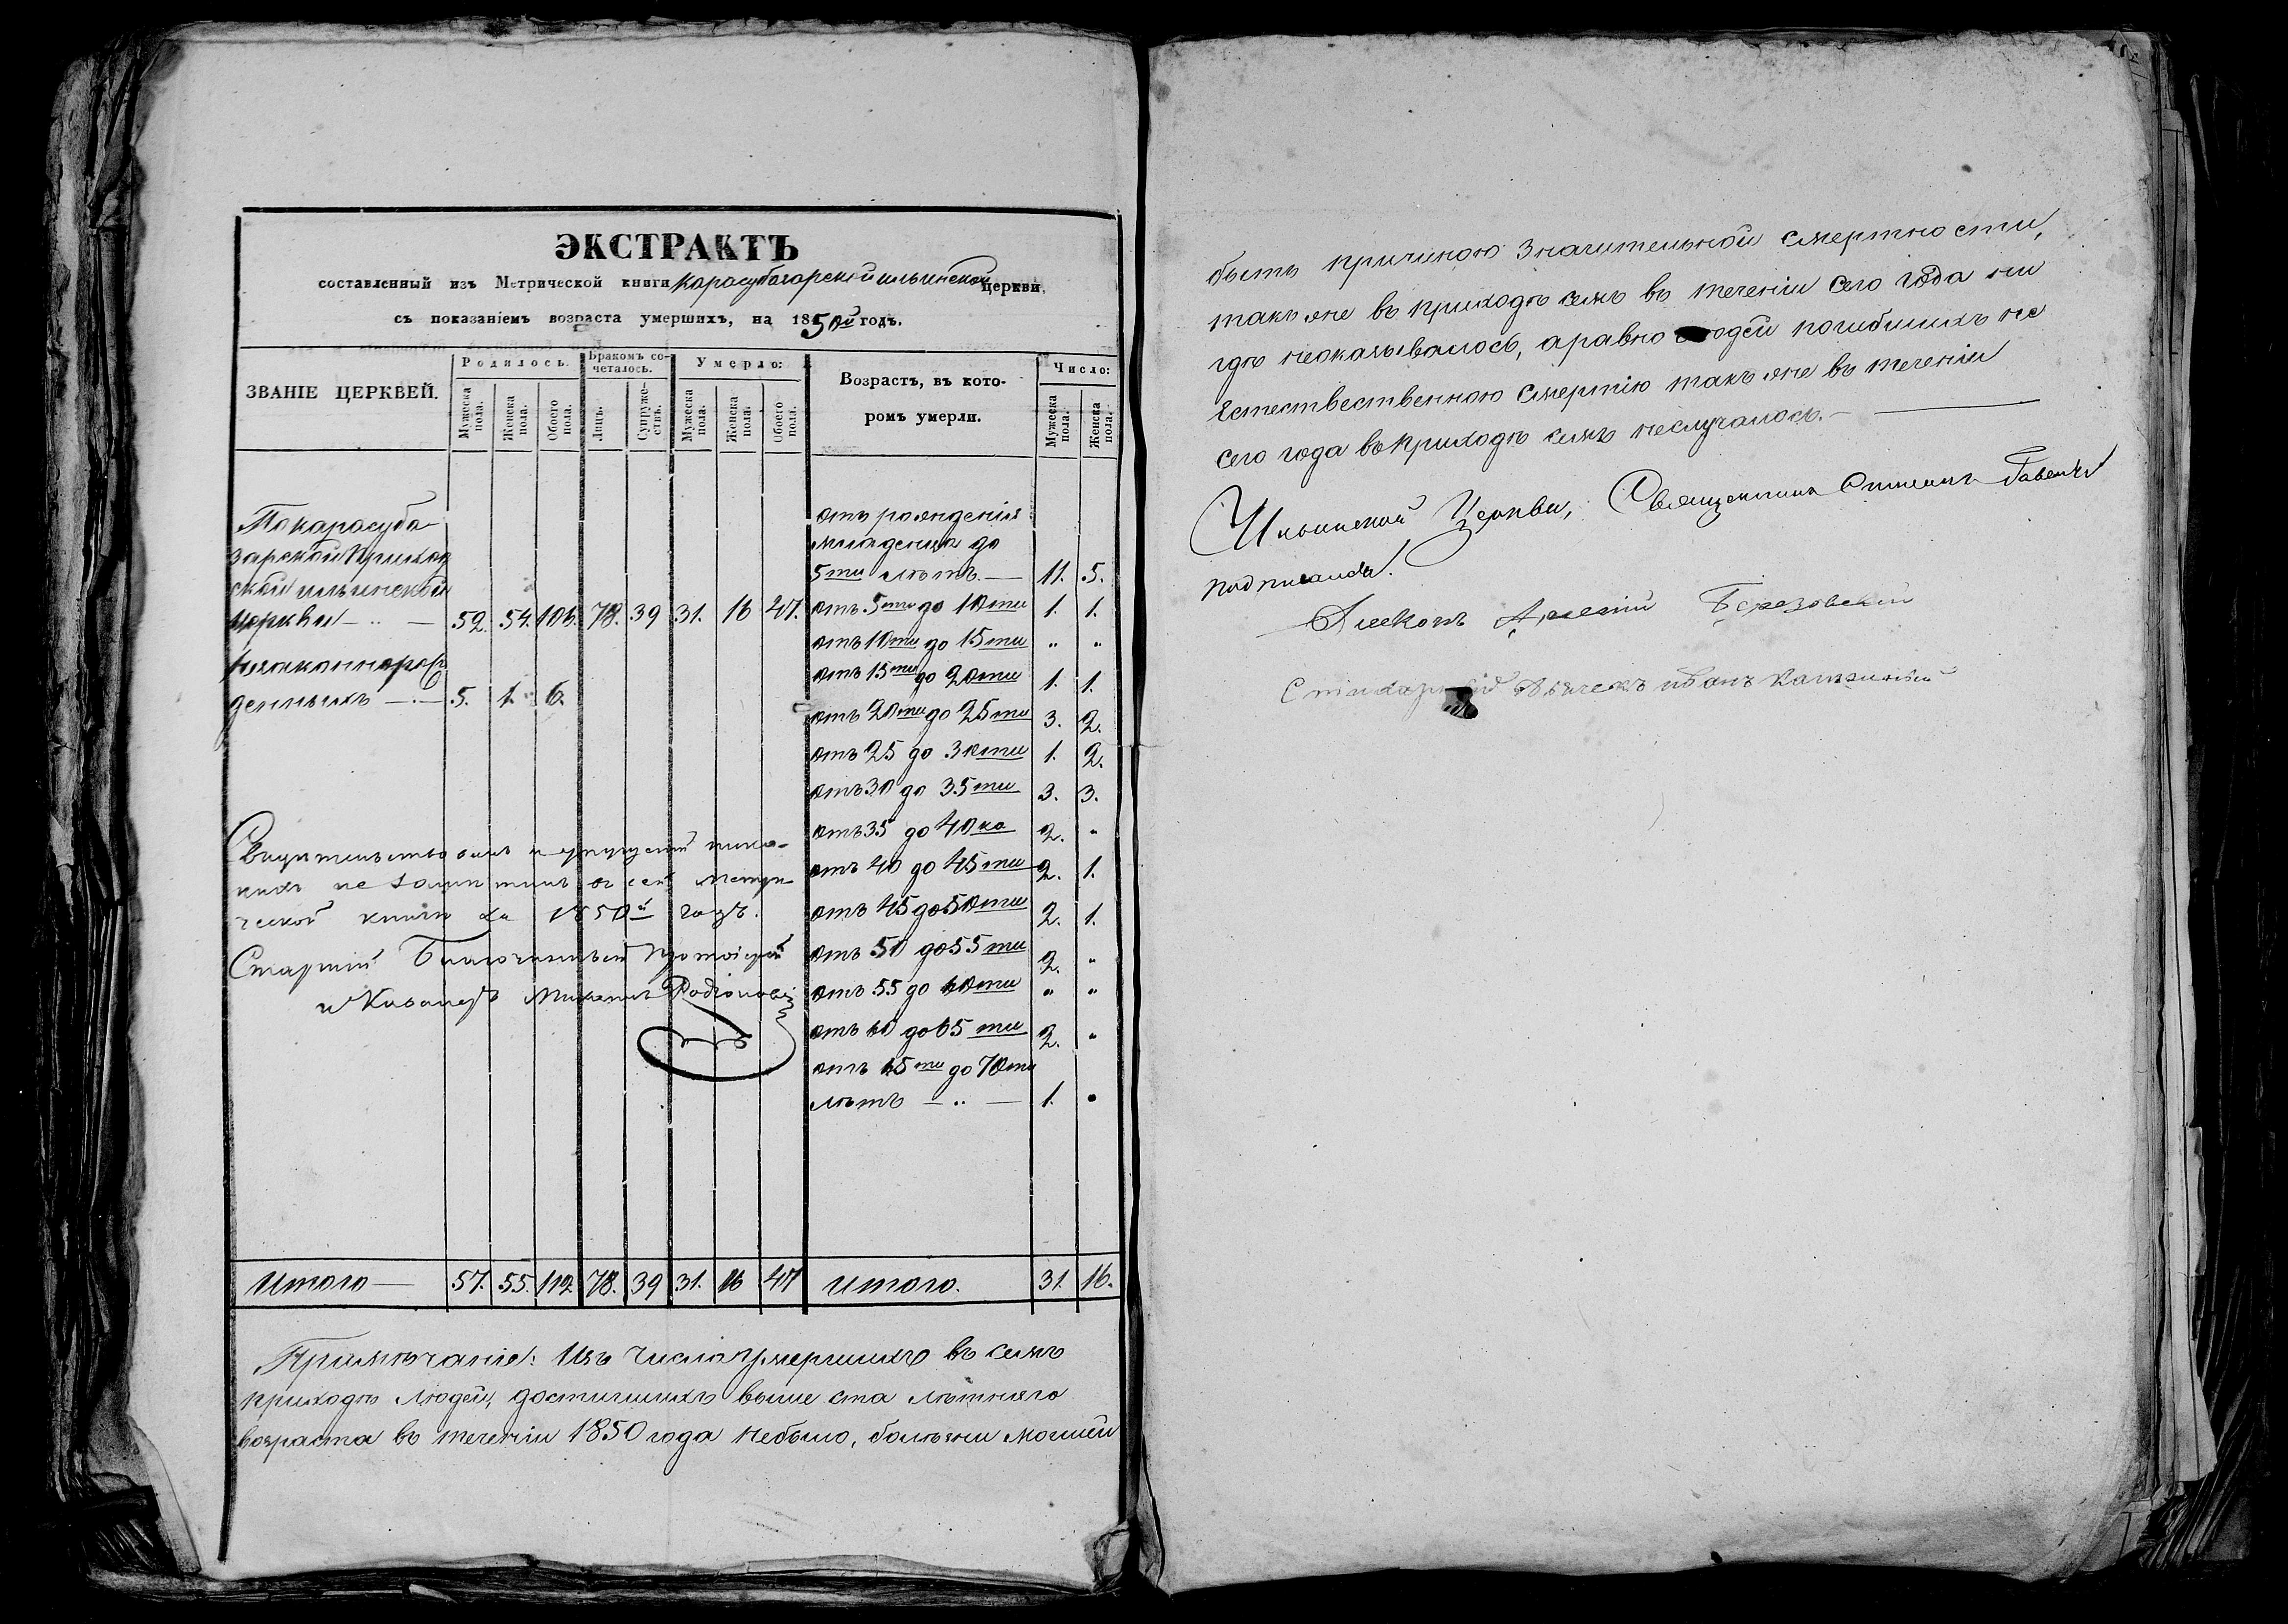 ЭКСТРАКТЪ
составленный изъ Метрической книги Карасубазарской ильинской церкви,
съ показаніемъ возраста умершихъ, на 1850й годъ.
ЗВАНІЕ ЦЕРКВЕЙ. Родилось. Бракомъ со-четалось. Умерло: Возрастъ, въ кото-ромъ умерли. Число:
Мужеска пола. Женска пола. Обоего пола. Лицъ. Супруже-ствъ. Мужеска пола. Женска пола. Обоего пола. Мужеска пола. Женска пола.
По карасуба-
зарской Приход
ской ильинской
церкви — 52. 54. 106. 78. 39 31. 16 47.
незаконнорож
денныхъ — 5. 1. 6.
отъ рожденія
младенца до
5ти лѣтъ. — 11. 5.
отъ 5ти до 10ти 1. 1.
отъ 10ти до 15ти " "
отъ 15ти до 20ти 1. 1.
отъ 20ти до 25ти 3. 2.
отъ 25 до 30ти 1. 2.
отъ 30 до 35ти 3. 3.
отъ 35 до 40ка 2. "
отъ 40 до 45ти 2. 1.
отъ 45 до 50ти 2. 1.
отъ 50 до 55ти 2. "
отъ 55 до 60ти " "
отъ 60 до 65ти 2. "
отъ 65ти до 70ти
лѣтъ — 1. "
Свидѣтельствовалъ и упущеній ника-
кихъ не замѣтилъ въ сей метри-
ческой книги за 1850й годъ.
Старшій Благочинный Протоіерей
и Кавалеръ Михаилъ Родіоновъ
Итого — 57. 55. 112. 78. 39 31. 16 47 Итого. 31. 16.
Примѣчаніе: Изъ числа умершихъ въ семъ
приходѣ людей, достигшихъ выше ста лѣтняго
возраста въ теченіи 1850 года небыло, болѣзни могшей
быть причиною значительной смертности,
такъ же въ приходѣ семъ въ теченіи сего года ни
гдѣ неоказывалось, а равно людей погибшихъ не
Естествественною смертію такъ же въ теченіи
сего года въ приходѣ семъ неслучалось. —
Ильинской Церкви, Священникъ
подписался.
Діяконъ Березовскій
Стихарный Дьячекъ иванъ